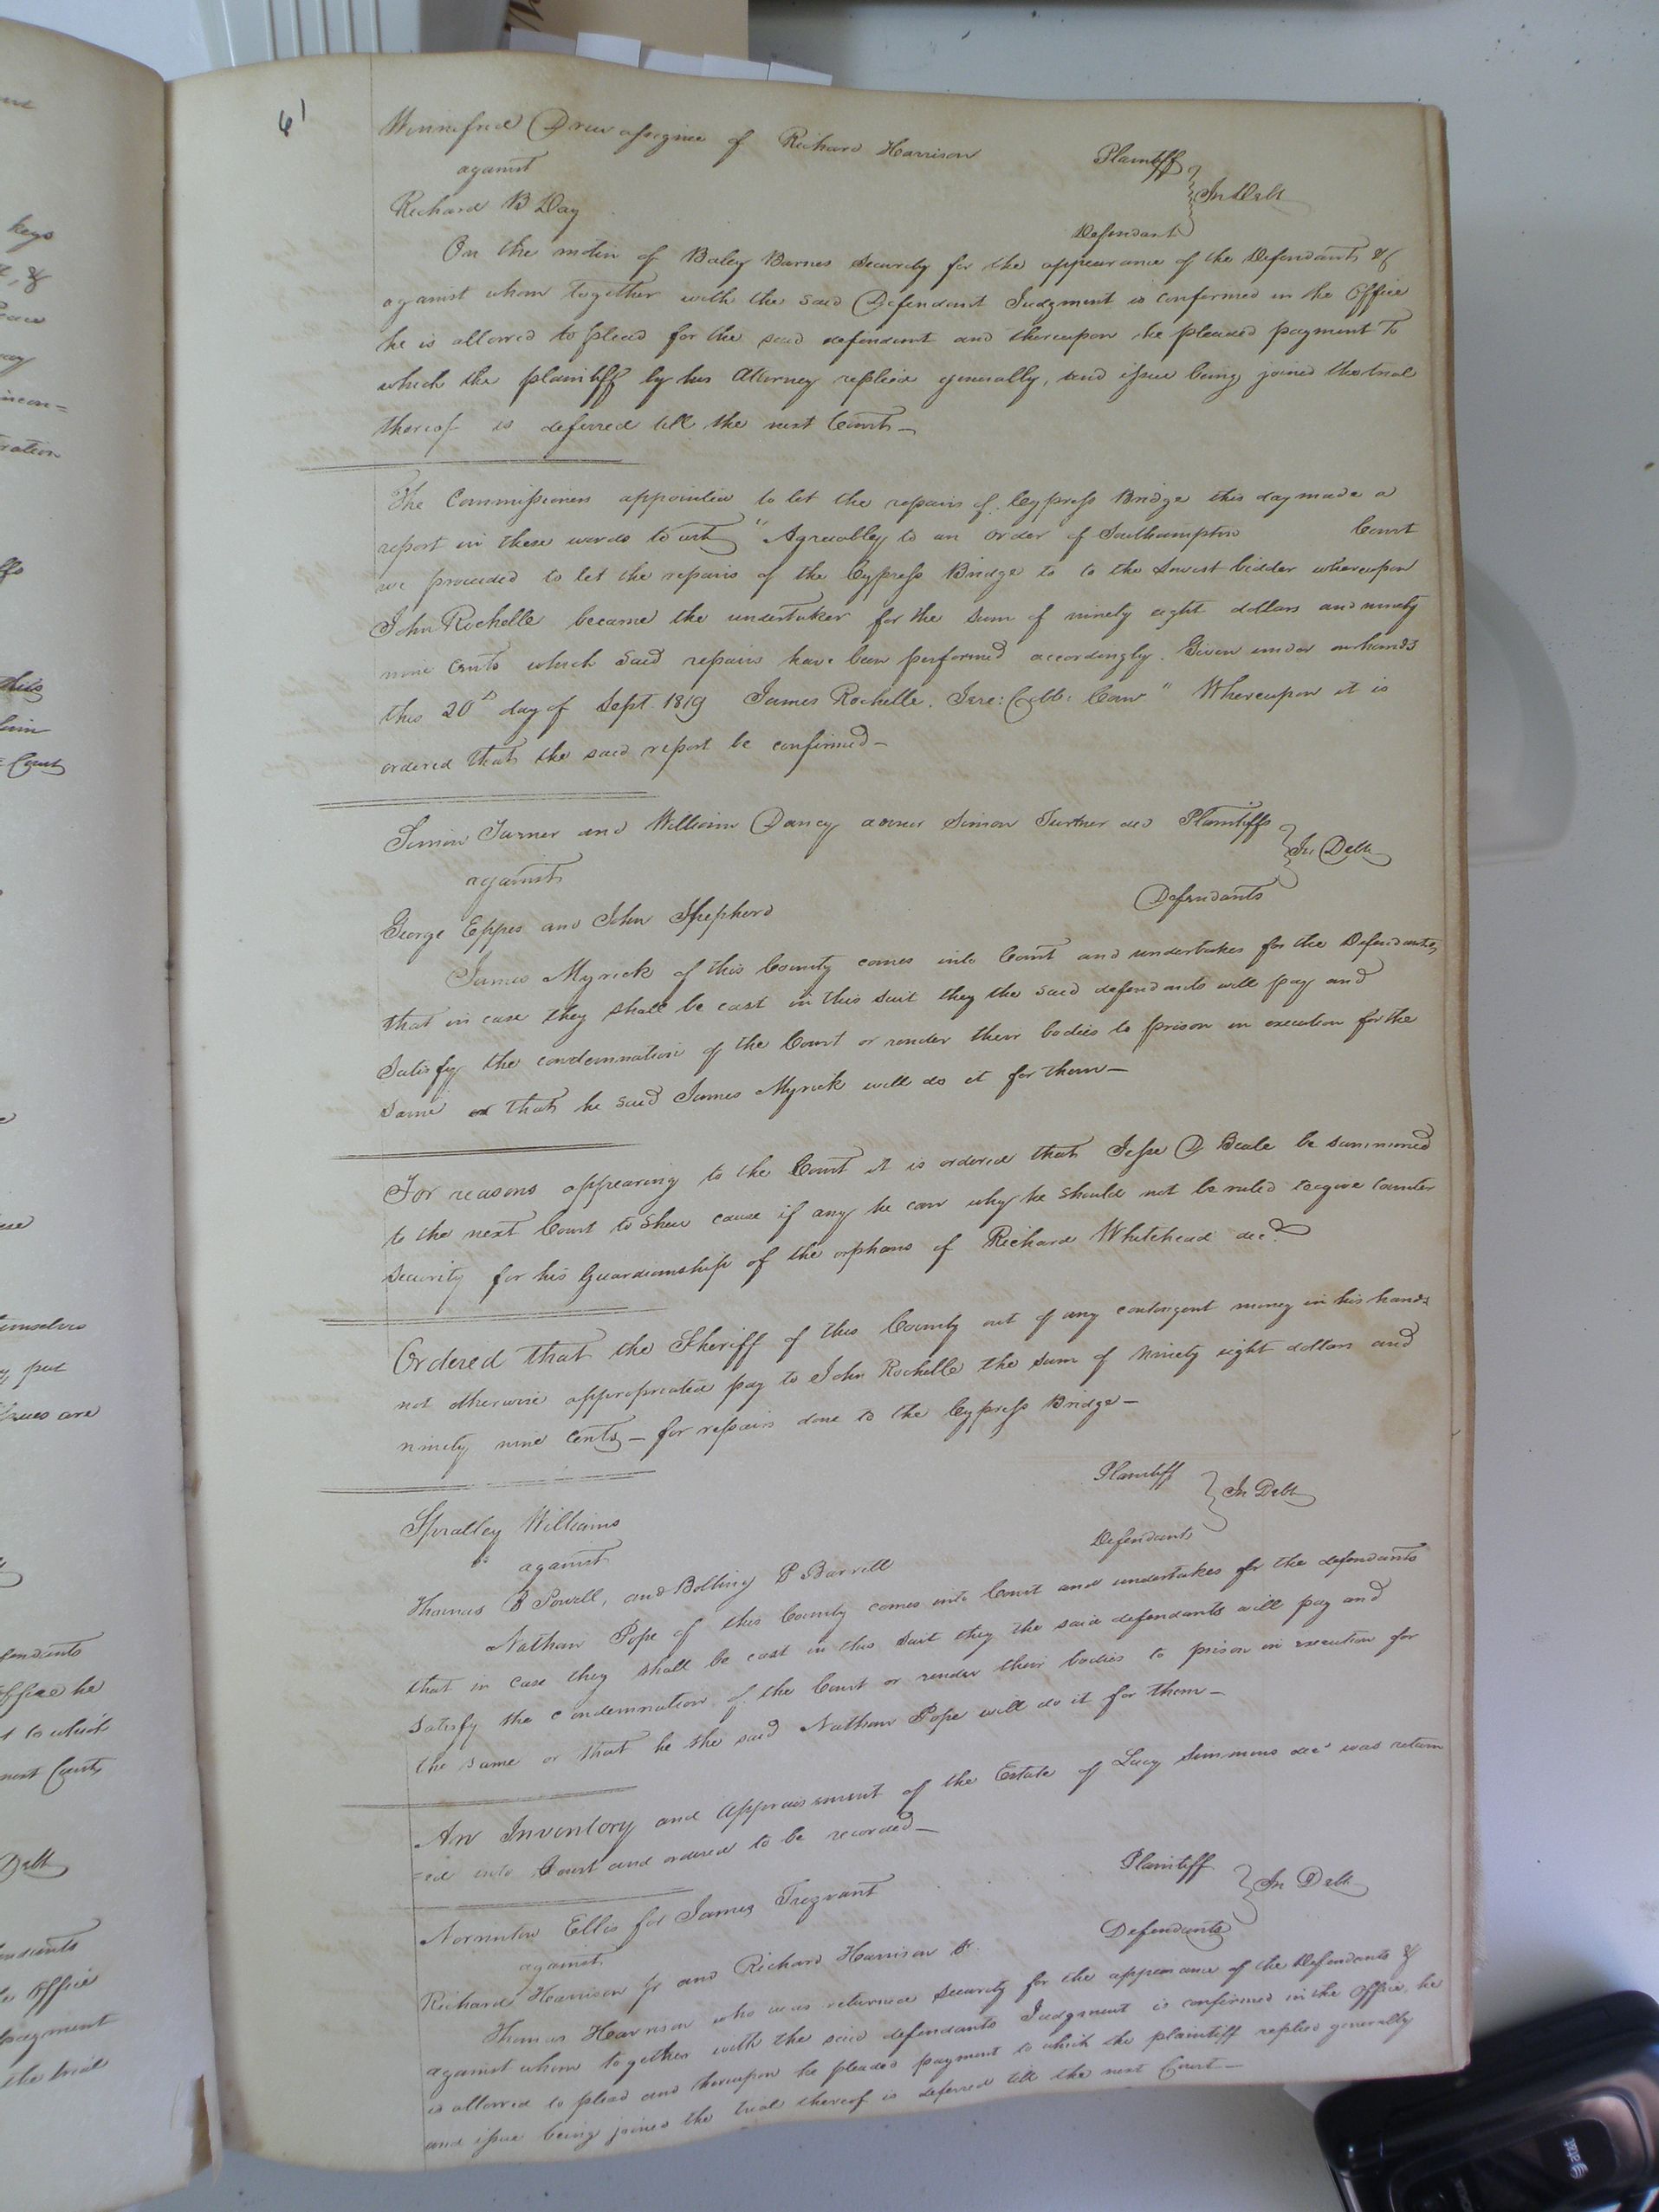 61
Winnifred Drew assignee of Richard Harrison Plaintiff
against In Debt
Richard B Day Defendant
On the motion of Baley Barnes Security for the appearance of the Defendants &
against whom together with the said Defendant Judgment is confirmed in the Office
he is allowed to plead for the said defendant and thereupon he pleaded payment to
which the plaintiff by his Attorney replied generally, and issue being joined the trial
thereof is deferred till the next Court—
The Commissioners appointed to let the repairs of Cypress Bridge this day made a
report in these words to wit "Agreeably to an order of Southampton Court
we proceeded to let the repairs of the Cypress Bridge to to the lowest bidder whereupon
John Rochelle became the undertaker for the sum of ninety eight dollars and ninety
nine Cents which said repairs have been performed accordingly. Given under our hands
this 20th day of Sept. 1819 James Rochelle, " Whereupon it is
ordered that the said report be confirmed—
Simon Turner and William Dancy Simon Turner dec Plaintiffs
against In Debt
George Eppes and John Shepherd Defendants
James Myrick of this County comes into Court and undertakes for the Defendants,
that in case they shall be cast in this suit they the said defendants will pay and
satisfy the condemnation of the Court or render their bodies to prison in execution for the
same or that he said James Myrick will do it for them—
For reasons appearing to the Court it is ordered that Jesse D Beale be summoned
to the next Court to shew cause if any he can why he should not be ruled to give Counter
security for his Guardianship of the orphans of Richard Whitehead decd.
Ordered that the Sheriff of this County out of any contingent money in his hands
not otherwise appropriated pay to John Rochelle the sum of Ninety eight dollars and
ninety nine Cents— for repairs done to the Cypress Bridge—
Spratley Williams Plaintiff
against In Debt
Thomas B Powell, and Bolling P Barrett Defendants
Nathan Pope of this County comes into Court and undertakes for the defendants
that in case they shall be cast in this suit they the said defendants will pay and
satisfy the condemnation of the Court or render their bodies to prison in execution for
the same or that he the said Nathan Pope will do it for them—
An Inventory and Appraisement of the Estate of Lucy Simmons decd was return
=ed into Court and ordered to be recorded—
Ellis for James Trezvant Plaintiff
against In Debt
Richard Harrison Jr and Richard Harrison Sr. Defendants
Thomas Harrison who was returned security for the appearance of the Defendants &
against whom together with the said defendants Judgment is confirmed in the Office, he
is allowed to plead and thereupon he pleaded payment to which the plaintiff replied generally
and issue being joined the trial thereof is deferred till the next Court—
at&t